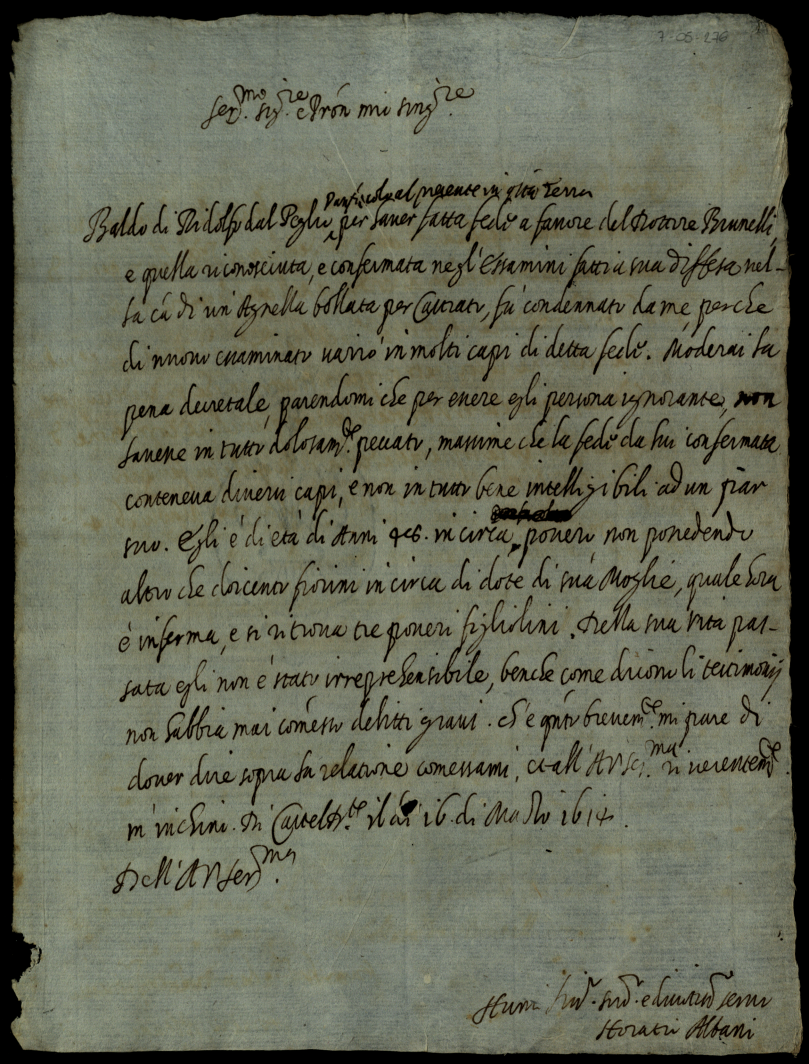 7-05-276
Ser.mo Sig.re e Prón mio sing.re
Pontirolo al presente in q.sta Terra
Baldo di Ridolfo dal Peglio per haver fatta fede a favore del Dottore Brunelli,
e quella riconosciuta, e confermata negl'Essamini fatti a sua diffesa nel-
la cá di un'Agnella bollata per Castrato, fú condennato da me, perche
di nuovo essaminato varió in molti capi di detta fede. Moderai la
pena decretale, parendomi che per essere egli persona ignorante, non
havesse in tutto dolosam.te peccato, massime che la fede da lui confermata
conteneva diversi capi, e non in tutto bene intelligibili ad un piar
suo. Egli é di etá di Anni 46. in circa, povero non possedendo
altro che doicento fiorini in circa di dote di sua Moglie, quale hora
é inferma, e si ritrova tre poveri figliolini. Della sua vita pas-
sata egli non é stato irreprehensibile, benche come dicono li testimonij
non habbia mai comesso delitti gravi. Ch'é q.nto brevem.te mi pare di
dover dire sopra la relatione comessami, et all'A V Ser.ma riverentem.te
m'inchino. Di Casteld.te il dí 16. di Marzo 1614.
Dell'A V Ser.ma
Hum.
e divotiss.o servo
Horatio Albani